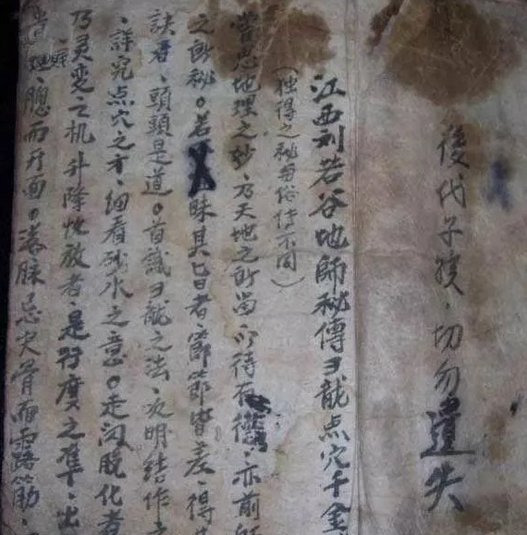 後代子孩，切勿遺失
江西刘若谷地師秘傳ヨ龍点穴千金
（独得之秘与俗傳不同）
嘗思地理之妙、乃天地之所畄、以待有德、亦前
之所秘。若昧其旨者、節節皆差、得
訣者、頭頭是道。首識ヨ龍之法、次明結作之
、詳究点穴之方、细看砂水之意。走闪脱化者
乃灵变之机升降收放者、是行度之準、出
而开面。落脉忌失骨而露筋、